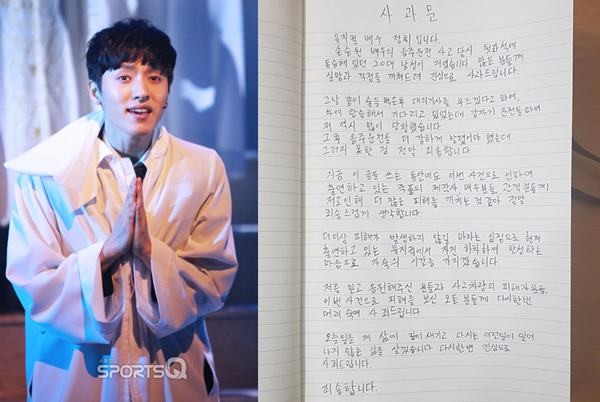 사 과 문
뮤지컬 배우 정휘입니다.
손승원 배우의 음주운전 사고 당시 뒷좌석에
동승해 있던 20대 남성이 저였습니다. 많은 분들께
실망과 걱정을 끼쳐드려 진심으로 사과드립니다.
그날 같이 술을 먹은후 대리기사를 부르겠다고 하여
차에 탑승해서 기다리고 있었는데 갑자기 운전을 하여
저 역시 많이 당황했습니다.
그후 음주운전을 더 강하게 말렸어야 했는데
그러지 못한 점 정말 죄송합니다.
지금 이 글을 쓰는 동안에도 이번 사건으로 인하여
출연하고 있는 작품의 제작사 배우분들, 관객분들께
저로인해 더 많은 피해를 끼치는 것 같아 정말
죄송스럽게 생각합니다.
더이상 피해가 발생하지 않길 바라는 심정으로 현재
출연하고 있는 뮤지컬에서 자진 하차하여 반성하는
마음으로 자숙의 시간을 가지겠습니다.
저를 믿고 응원해주신 분들과 사고차량의 피해자분들,
이번 사건으로 피해를 보신 모든 분들께 다시한번
머리 숙여 사죄드립니다
오늘일을 제 삶에 깊이 새기고 다시는 이런일이 일어
나지 않는 삶을 살겠습니다 다시한번 진심으로
사죄드립니다.
죄송합니다.
스포츠Q
SPORTSQ